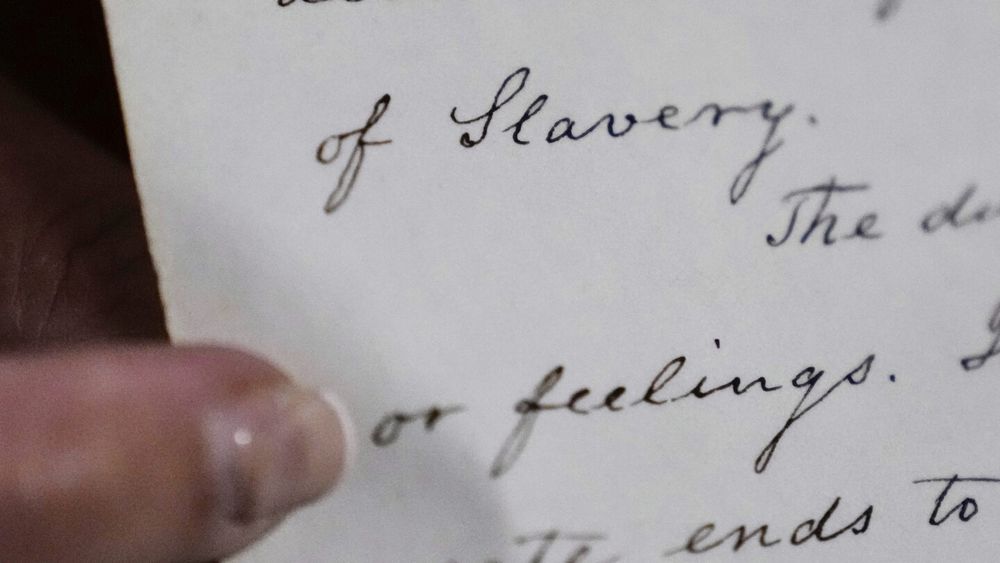 of Slavery.
The
or feelings.
ends to